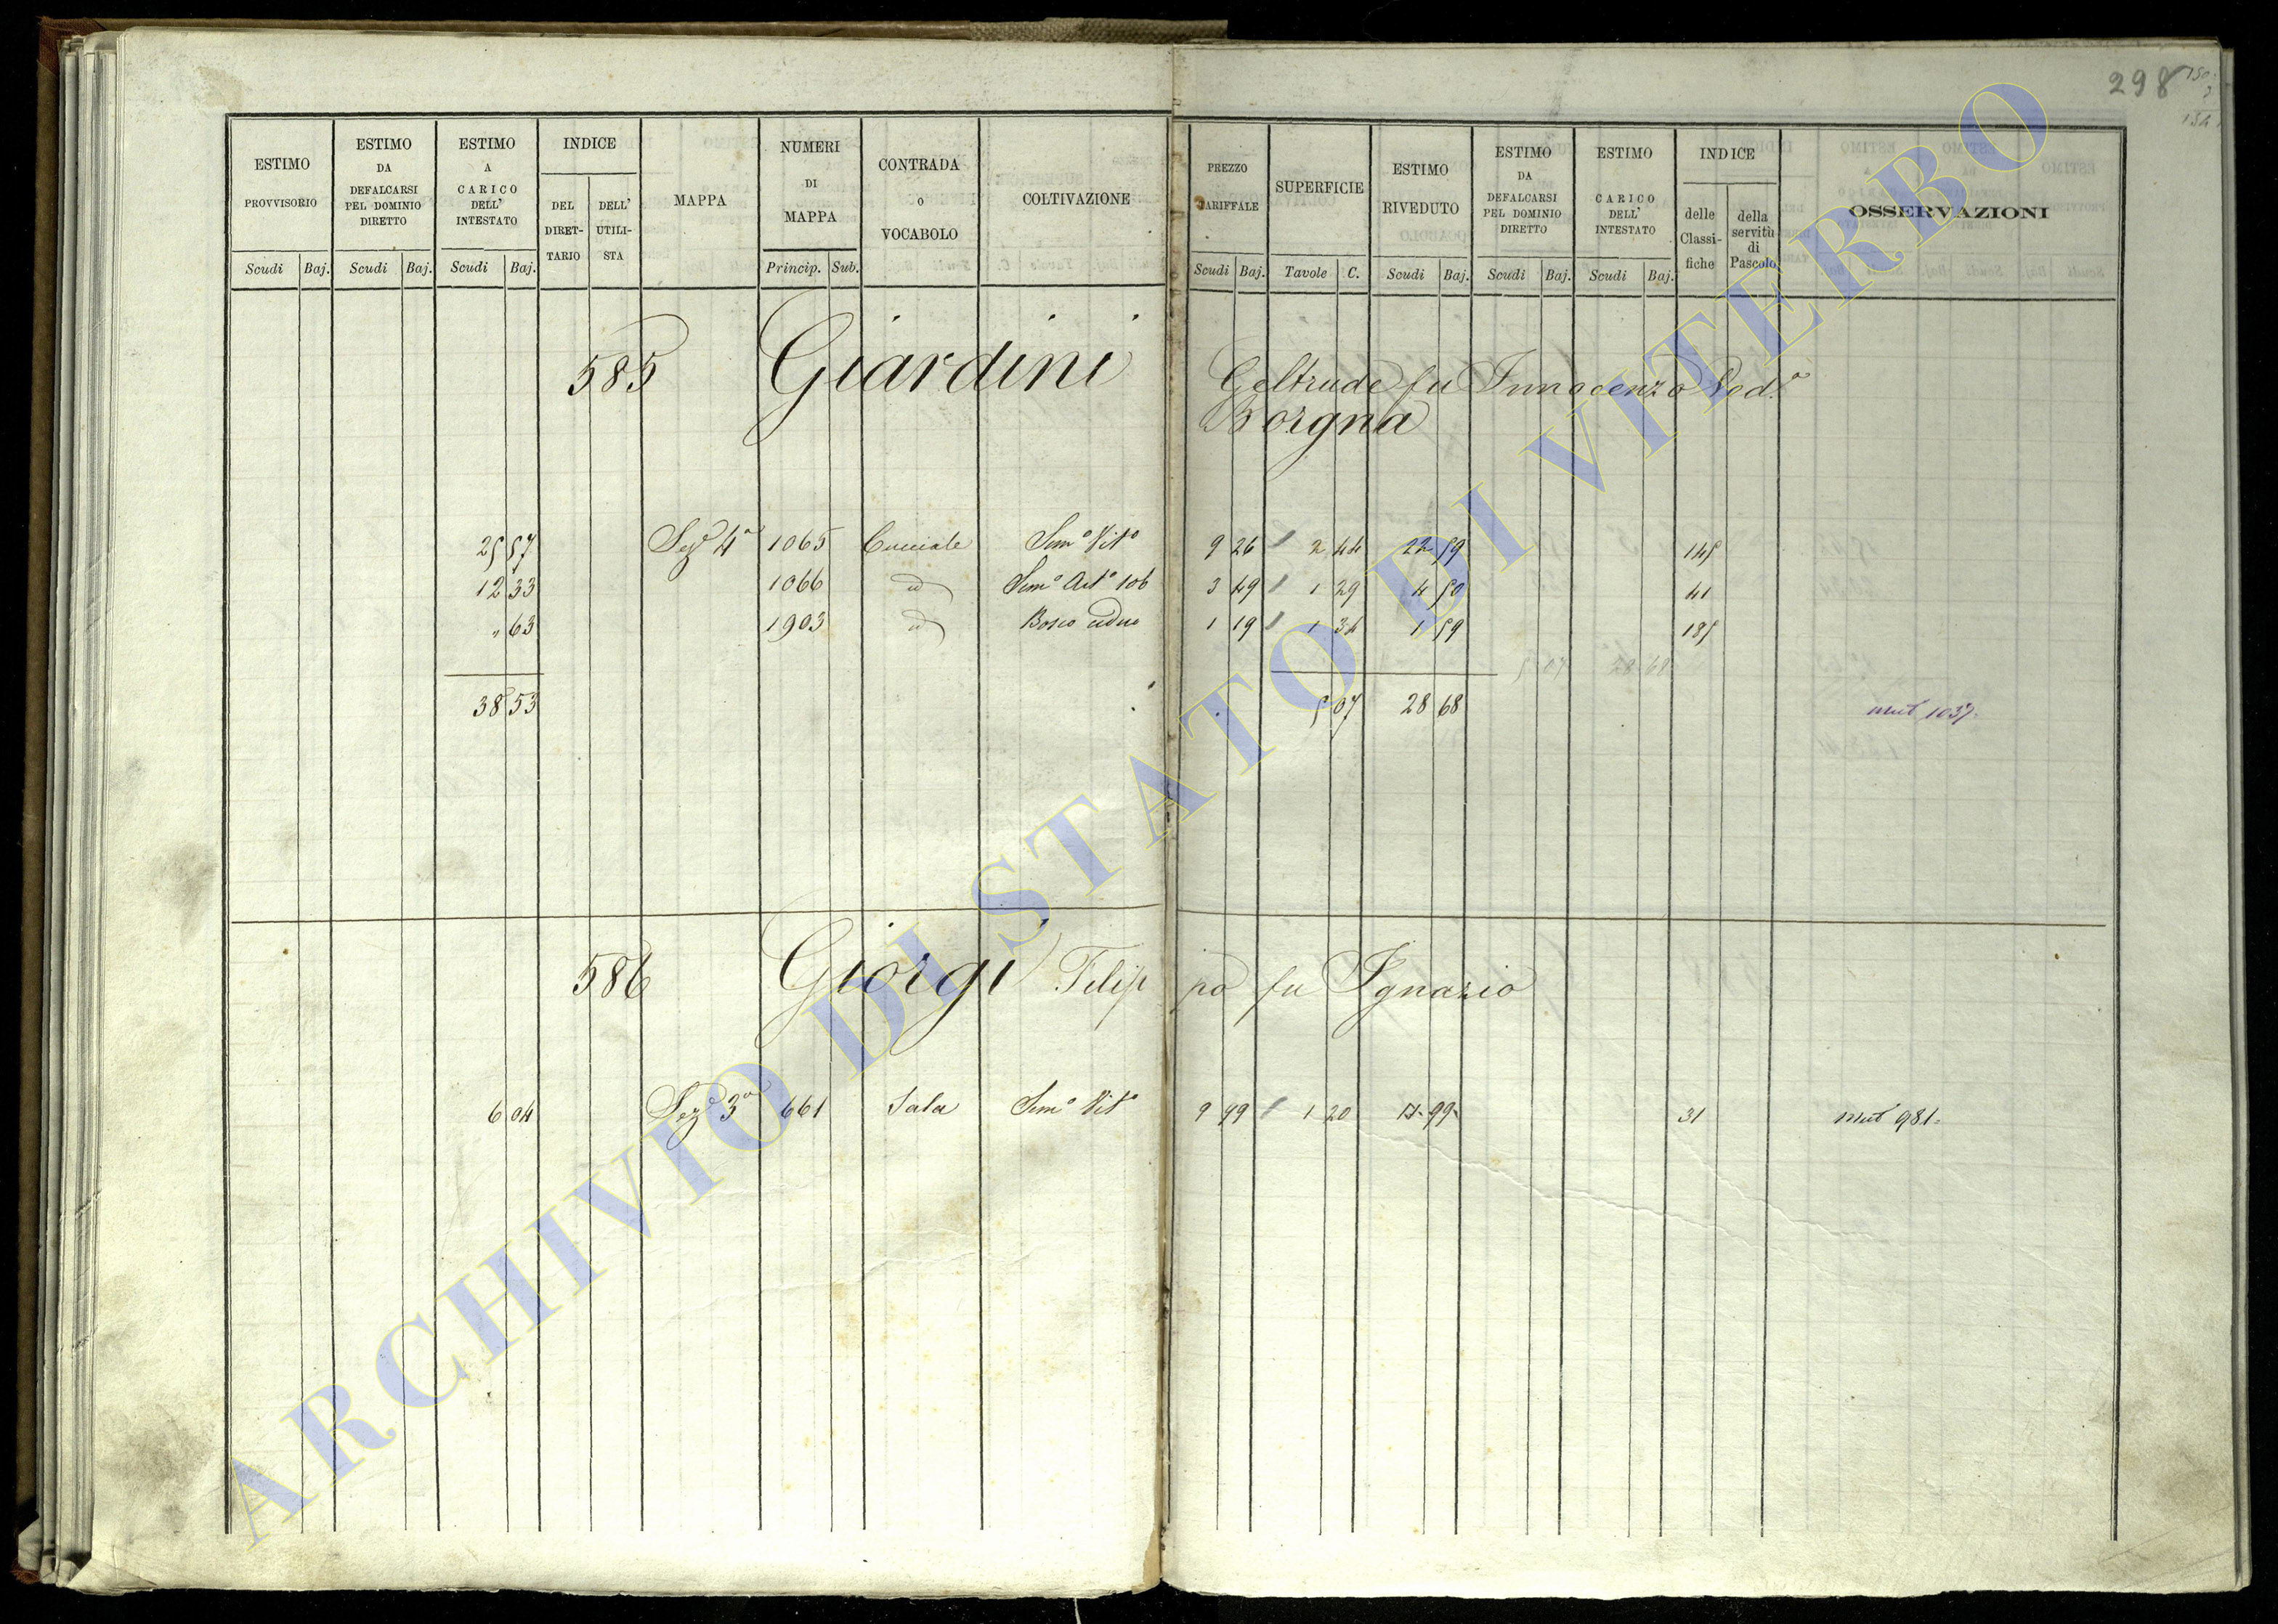 298
ESTIMO PROVVISORIO
ESTIMO DA DEFALCARSI PEL DOMINIO DIRETTO
ESTIMO A CARICO DELL' INTESTATO
INDICE
DEL DIRET-TARIO
DELL' UTILI-STA
MAPPA
NUMERI DI MAPPA
CONTRADA O VOCABOLO
COLTIVAZIONE
PREZZO TARIFFALE
SUPERFICIE
ESTIMO RIVEDUTO
ESTIMO DA DEFALCARSI PEL DOMINIO DIRETTO
ESTIMO CARICO DELL' INTESTATO
INDICE
delle Classi-fiche
della servitù di Pascolo
OSSERVAZIONI
Scudi Baj. Scudi Baj. Scudi Baj. Princip. Sub. Scudi Baj. Tavole C. Scudi Baj. Scudi Baj. Scudi Baj.
585 Giardini Geltrude fu Innocenzo Ved.a
Borgna
25 57 Sez.e 4a 1065 Cucciale Sem.o Vit.o 9 26 2 44 22 59 145
12 33 1066 id Sem.o Art.o 106 3 49 1 29 4 50 41
" 63 1903 id Bosco ceduo 1 19 1 34 1 59 185
5 07 28 68
38 53 5 07 28 68 mut 1037.
586 Giorgi Filippo fu Ignazio
6 04 Sez.e 3a 661 Sala Sem.o Vit.o 9 99 1 20 11 99 31 mut 981.
ARCHIVIO DI STATO DI VITERBO